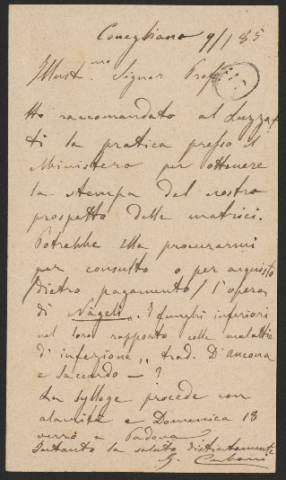 Conegliano 9/1 85
Illust.mo Signor Prof
Ho raccomandato al Luzzat
ti la pratica presso il
Ministero per ottenere
la stampa del nostro
prospetto delle matrici.
Potrebbe Ella procurarmi
per consulto o per acquisto
(dietro pagamento) l'opera
di Nägeli „I funghi inferiori
nel loro rapporto colle malattie
d'infezione„ trad. D'ancona
e Saccardo — ?
La Sylloge procede con
alacrità e Domenica 18
verrò a Padova
Intanto la saluto distintamente
G.